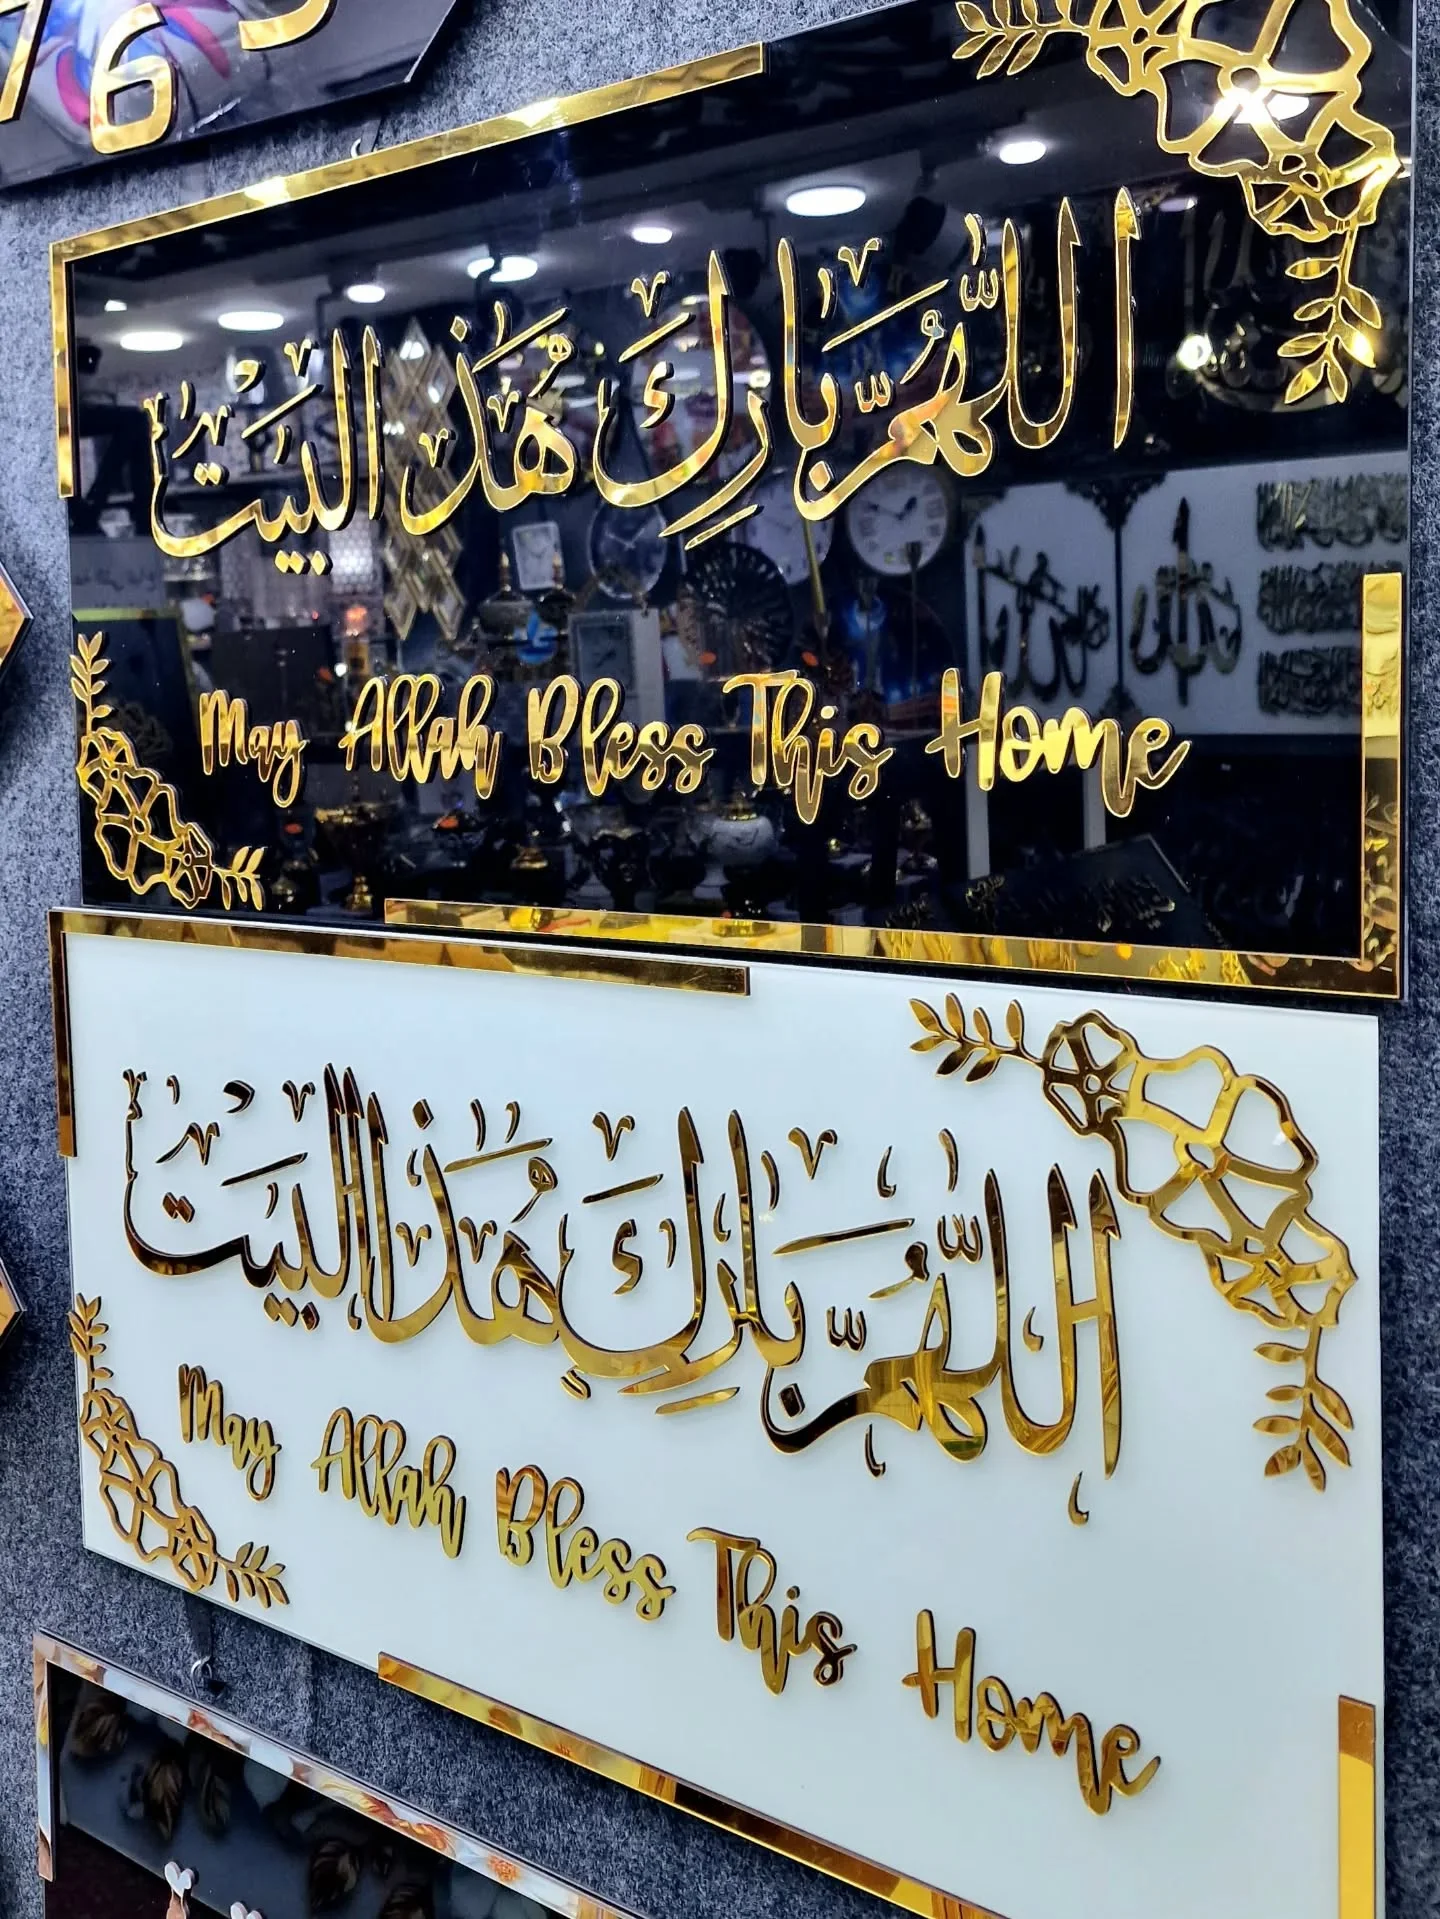 76
اللهم بارك هذا البيت
May Allah Bless This Home
اللهم بارك هذا البيت
May Allah Bless This Home